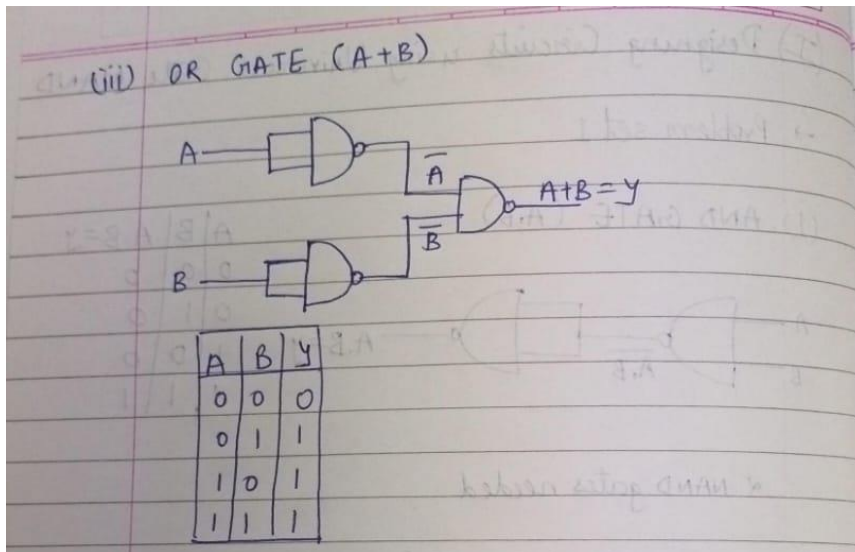 (iii) OR GATE (A+B)
A
A̅
A+B=Y
B̅
B
A B Y
0 0 0
0 1 1
1 0 1
1 1 1